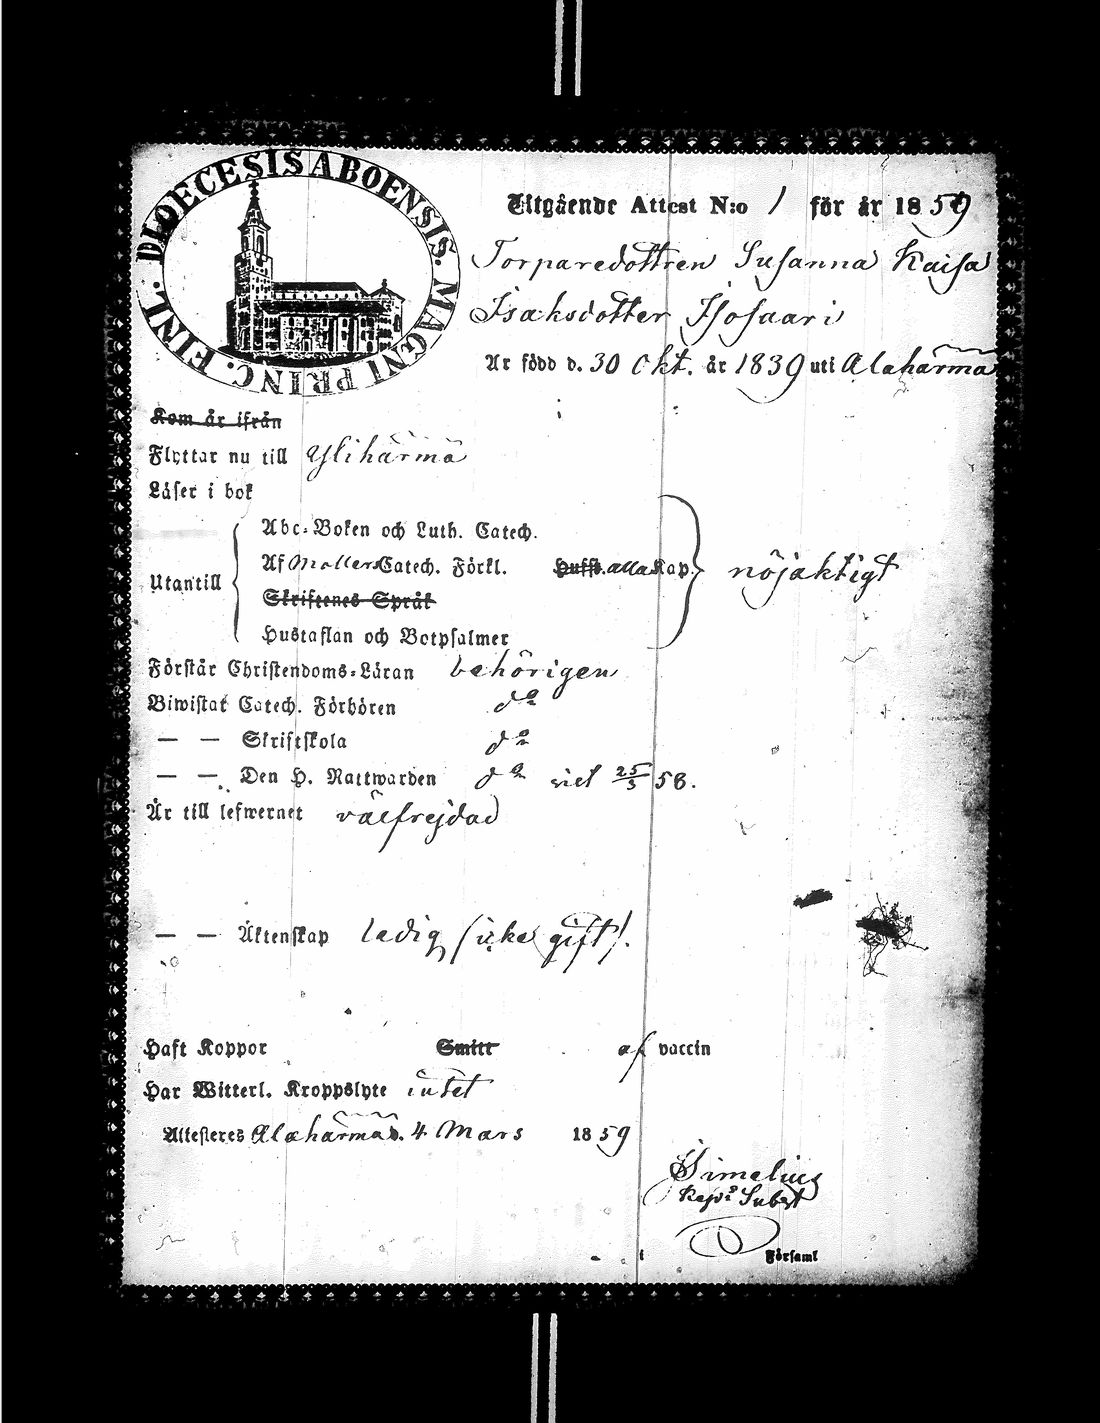 DIOECESIS ABOENSIS. MAGNI PRINC. FINL.
Utgående Attest N:o 1 för år 1859
Torparedottren Susanna Kaisa
Isaksdotter Isosaari
Är född d. 30 Okt. år 1839 uti Alahärmä
Kom år ifrån
Flyttar nu till Ylihärmä
Läser i bok
Utantill
Abc-Boken och Luth. Catech.
Af Möllers Catech. Förkl. alla Kap.
nöjaktigt
Skriftenes Språk
Hustaflan och Botpsalmer
Förstår Christendoms-Läran behörigen
Biwistat Catech. Förhören d:o
— — Skriftskola d:o
— — Den H. Nattwarden d:o sist 25/3 58.
Är till lefwernet välfrejdad
— — Äktenskap ledig (icke gift).
Haft Koppor Smitt af vaccin
Har Witterl. Kroppslyte intet
Attesteres Alahärmä d. 4 Mars 1859
Simelius
i Församl